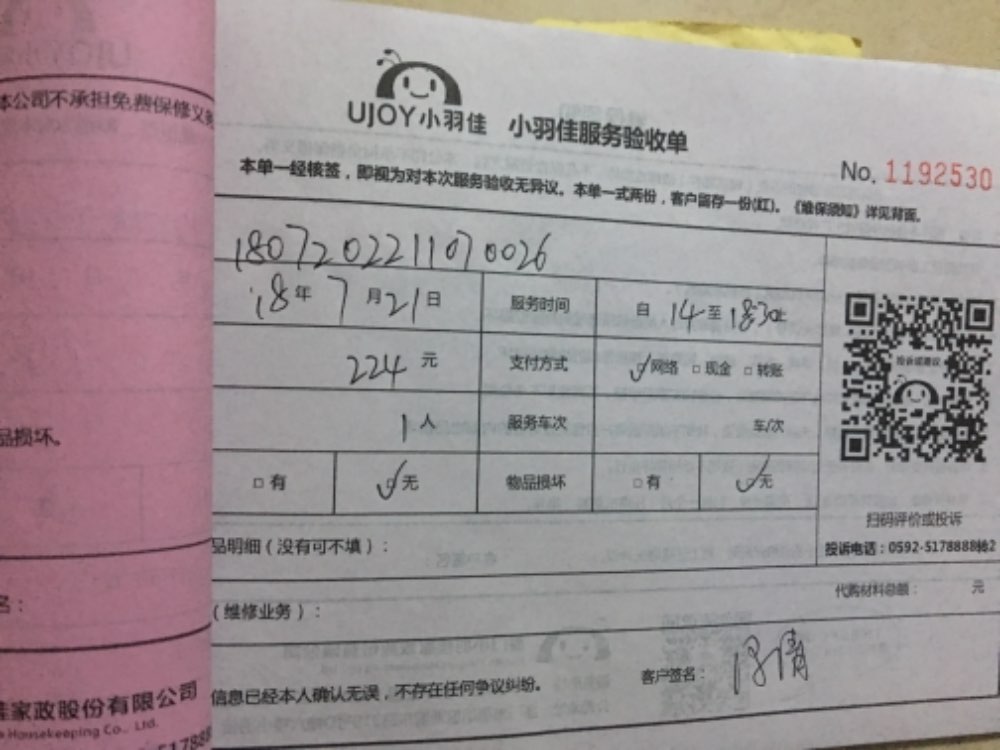 本公司不承担免费保修义务
UJOY小羽佳 小羽佳服务验收单
No. 1192530
本单一经核签，即视为对本次服务验收无异议。本单一式两份，客户留存一份(红)。《维保须知》详见背面。
180720221107 0026
18年7月21日 服务时间 自14至1830止
224元 支付方式 ☑网络 □现金 □转账
1人 服务车次 车/次
品损坏。
□有 ☑无 物品损坏 □有 ☑无
扫码评价或投诉
投诉电话：0592-5178888转2
品明细（没有可不填）：
代购材料总额： 元
名：
（维修业务）：
信息已经本人确认无误，不存在任何争议纠纷。 客户签名：
佳家政股份有限公司
Housekeeping Co., Ltd.